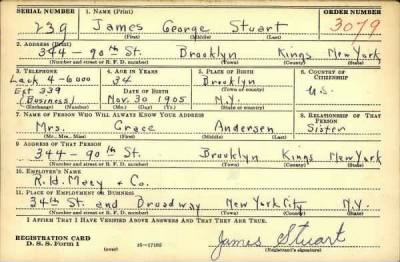 SERIAL NUMBER 1. NAME (Print) ORDER NUMBER
239 James George Stuart 3079
(First) (Middle) (Last)
2. ADDRESS (Print)
344 - 90th St. Brooklyn Kings New York
(Number and street or R. F. D. number) (Town) (County) (State)
3. TELEPHONE 4. AGE IN YEARS 5. PLACE OF BIRTH 6. COUNTRY OF CITIZENSHIP
Lack 4-6000 34 Brooklyn
Ext 339 DATE OF BIRTH (Town or county) U.S.
(Business) Nov. 30 1905 N.Y.
(Exchange) (Number) (Mo.) (Day) (Yr.) (State or country)
7. NAME OF PERSON WHO WILL ALWAYS KNOW YOUR ADDRESS 8. RELATIONSHIP OF THAT PERSON
Mrs. Grace Andersen Sister
(Mr., Mrs., Miss) (First) (Middle) (Last)
9. ADDRESS OF THAT PERSON
344 - 90th St. Brooklyn Kings New York
(Number and street or R. F. D. number) (Town) (County) (State)
10. EMPLOYER'S NAME
R. H. Macy + Co.
11. PLACE OF EMPLOYMENT OR BUSINESS
34th St. and Broadway New York City N.Y.
(Number and street or R. F. D. number) (Town) (County) (State)
I AFFIRM THAT I HAVE VERIFIED ABOVE ANSWERS AND THAT THEY ARE TRUE.
REGISTRATION CARD
D. S. S. Form 1 (over) 16-17105 James Stuart
(Registrant's signature)